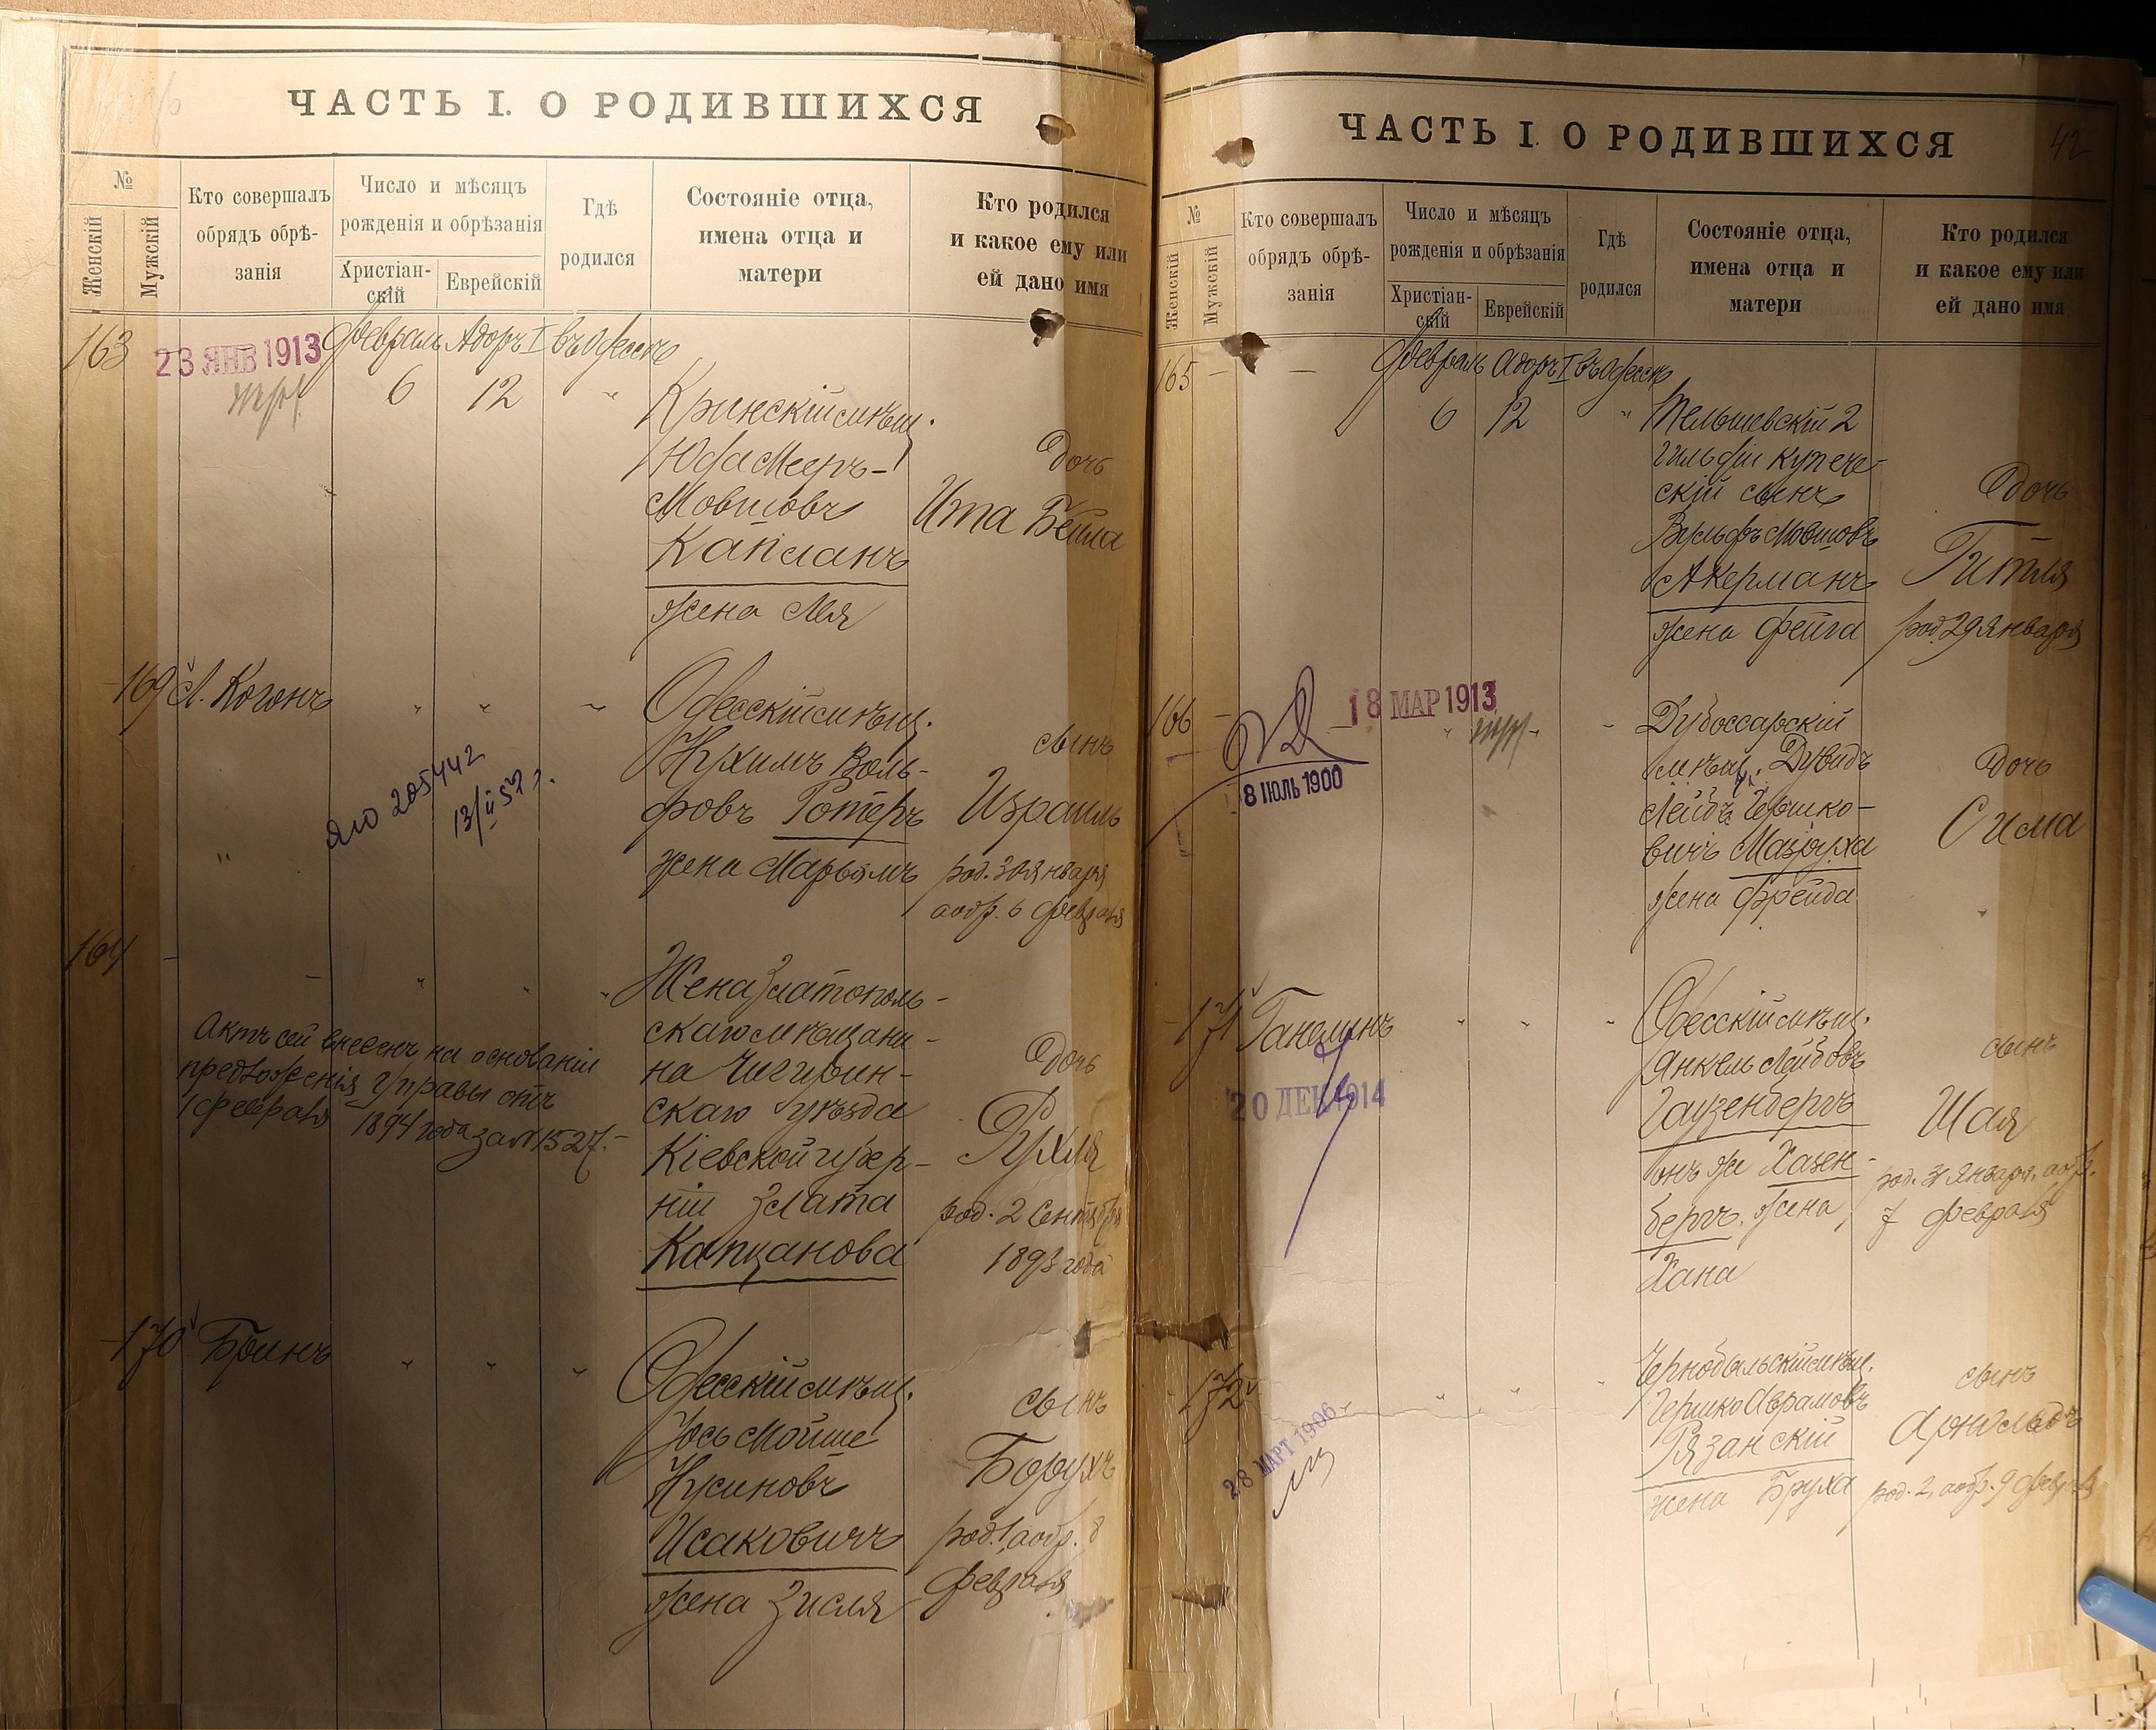 ЧАСТЬ I. О РОДИВШИХСЯ
№
Женскій
Мужскій
Кто совершалъ
обрядъ обрѣ-
занія
Число и мѣсяцъ
рожденія и обрѣзанія
Христіан-
скій
Еврейскій
Гдѣ
родился
Состояніе отца,
имена отца и
матери
Кто родился
и какое ему или
ей дано имя
163
23 ЯНВ 1913
Февраль Адаръ I въ Одессѣ
6 12 "
Кринскій мѣщ.
Юда Мееръ-
Мовшовъ
Капланъ
жена Лея
Дочь
Ита Бейла
169 Л. Когонъ " " "
Одесскій мѣщ.
Нухимъ Воль-
фовъ Ротеръ
жена Марьямъ
сынъ
Израиль
род. 30 января
а обр. 6 февраля
205442
13/II 57 г.
164 - - " " "
Жена Златополь-
скаго мѣщани-
на Чигирин-
скаго уѣзда
Кіевской губер-
ніи Злата
Капцанова
Дочь
Рухля
род. 2 Сентября
1893 года
Актъ сей внесенъ на основаніи
предложенія Г. Управы отъ
1 февраля 1894 года за № 1527.-
170 Бринъ " " "
Одесскій мѣщ.
Йось Мойше
Нусиновъ
Исаковичъ
жена Зисля
сынъ
Борухъ
род. 1, а обр. 8
февраля
ЧАСТЬ I. О РОДИВШИХСЯ
42
№
Женскій
Мужскій
Кто совершалъ
обрядъ обрѣ-
занія
Число и мѣсяцъ
рожденія и обрѣзанія
Христіан-
скій
Еврейскій
Гдѣ
родился
Состояніе отца,
имена отца и
матери
Кто родился
и какое ему или
ей дано имя
165 - -
Февраль Адаръ I въ Одессѣ
6 12 "
Тельшевскій 2
гильдіи купече-
скій сынъ
Вульфъ Мовшовъ
Акерманъ
жена Фейга
Дочь
Гитля
род. 29 января
166 -
18 МАР 1913
8 ІЮЛЬ 1900
Дубоссарскій
мѣщ. Дувидъ
Лейбъ Гершко-
вичъ Мазуруха
жена Фрейда
Дочь
Сима
171 Ганелинъ " " "
20 ДЕК 1914
Одесскій мѣщ.
Янкель Лейбовъ
Гаузенбергъ
онъ же Хазен-
бергъ, жена
Хана
сынъ
Шая
род. 31 января, а обр.
7 февраля
172 - " " "
28 МАРТ 1906
Чернобыльскій мѣщ.
Гершко Аврамовъ
Рязанскій
жена Бруха
сынъ
Арнольдъ
род. 2, а обр. 9 февраля